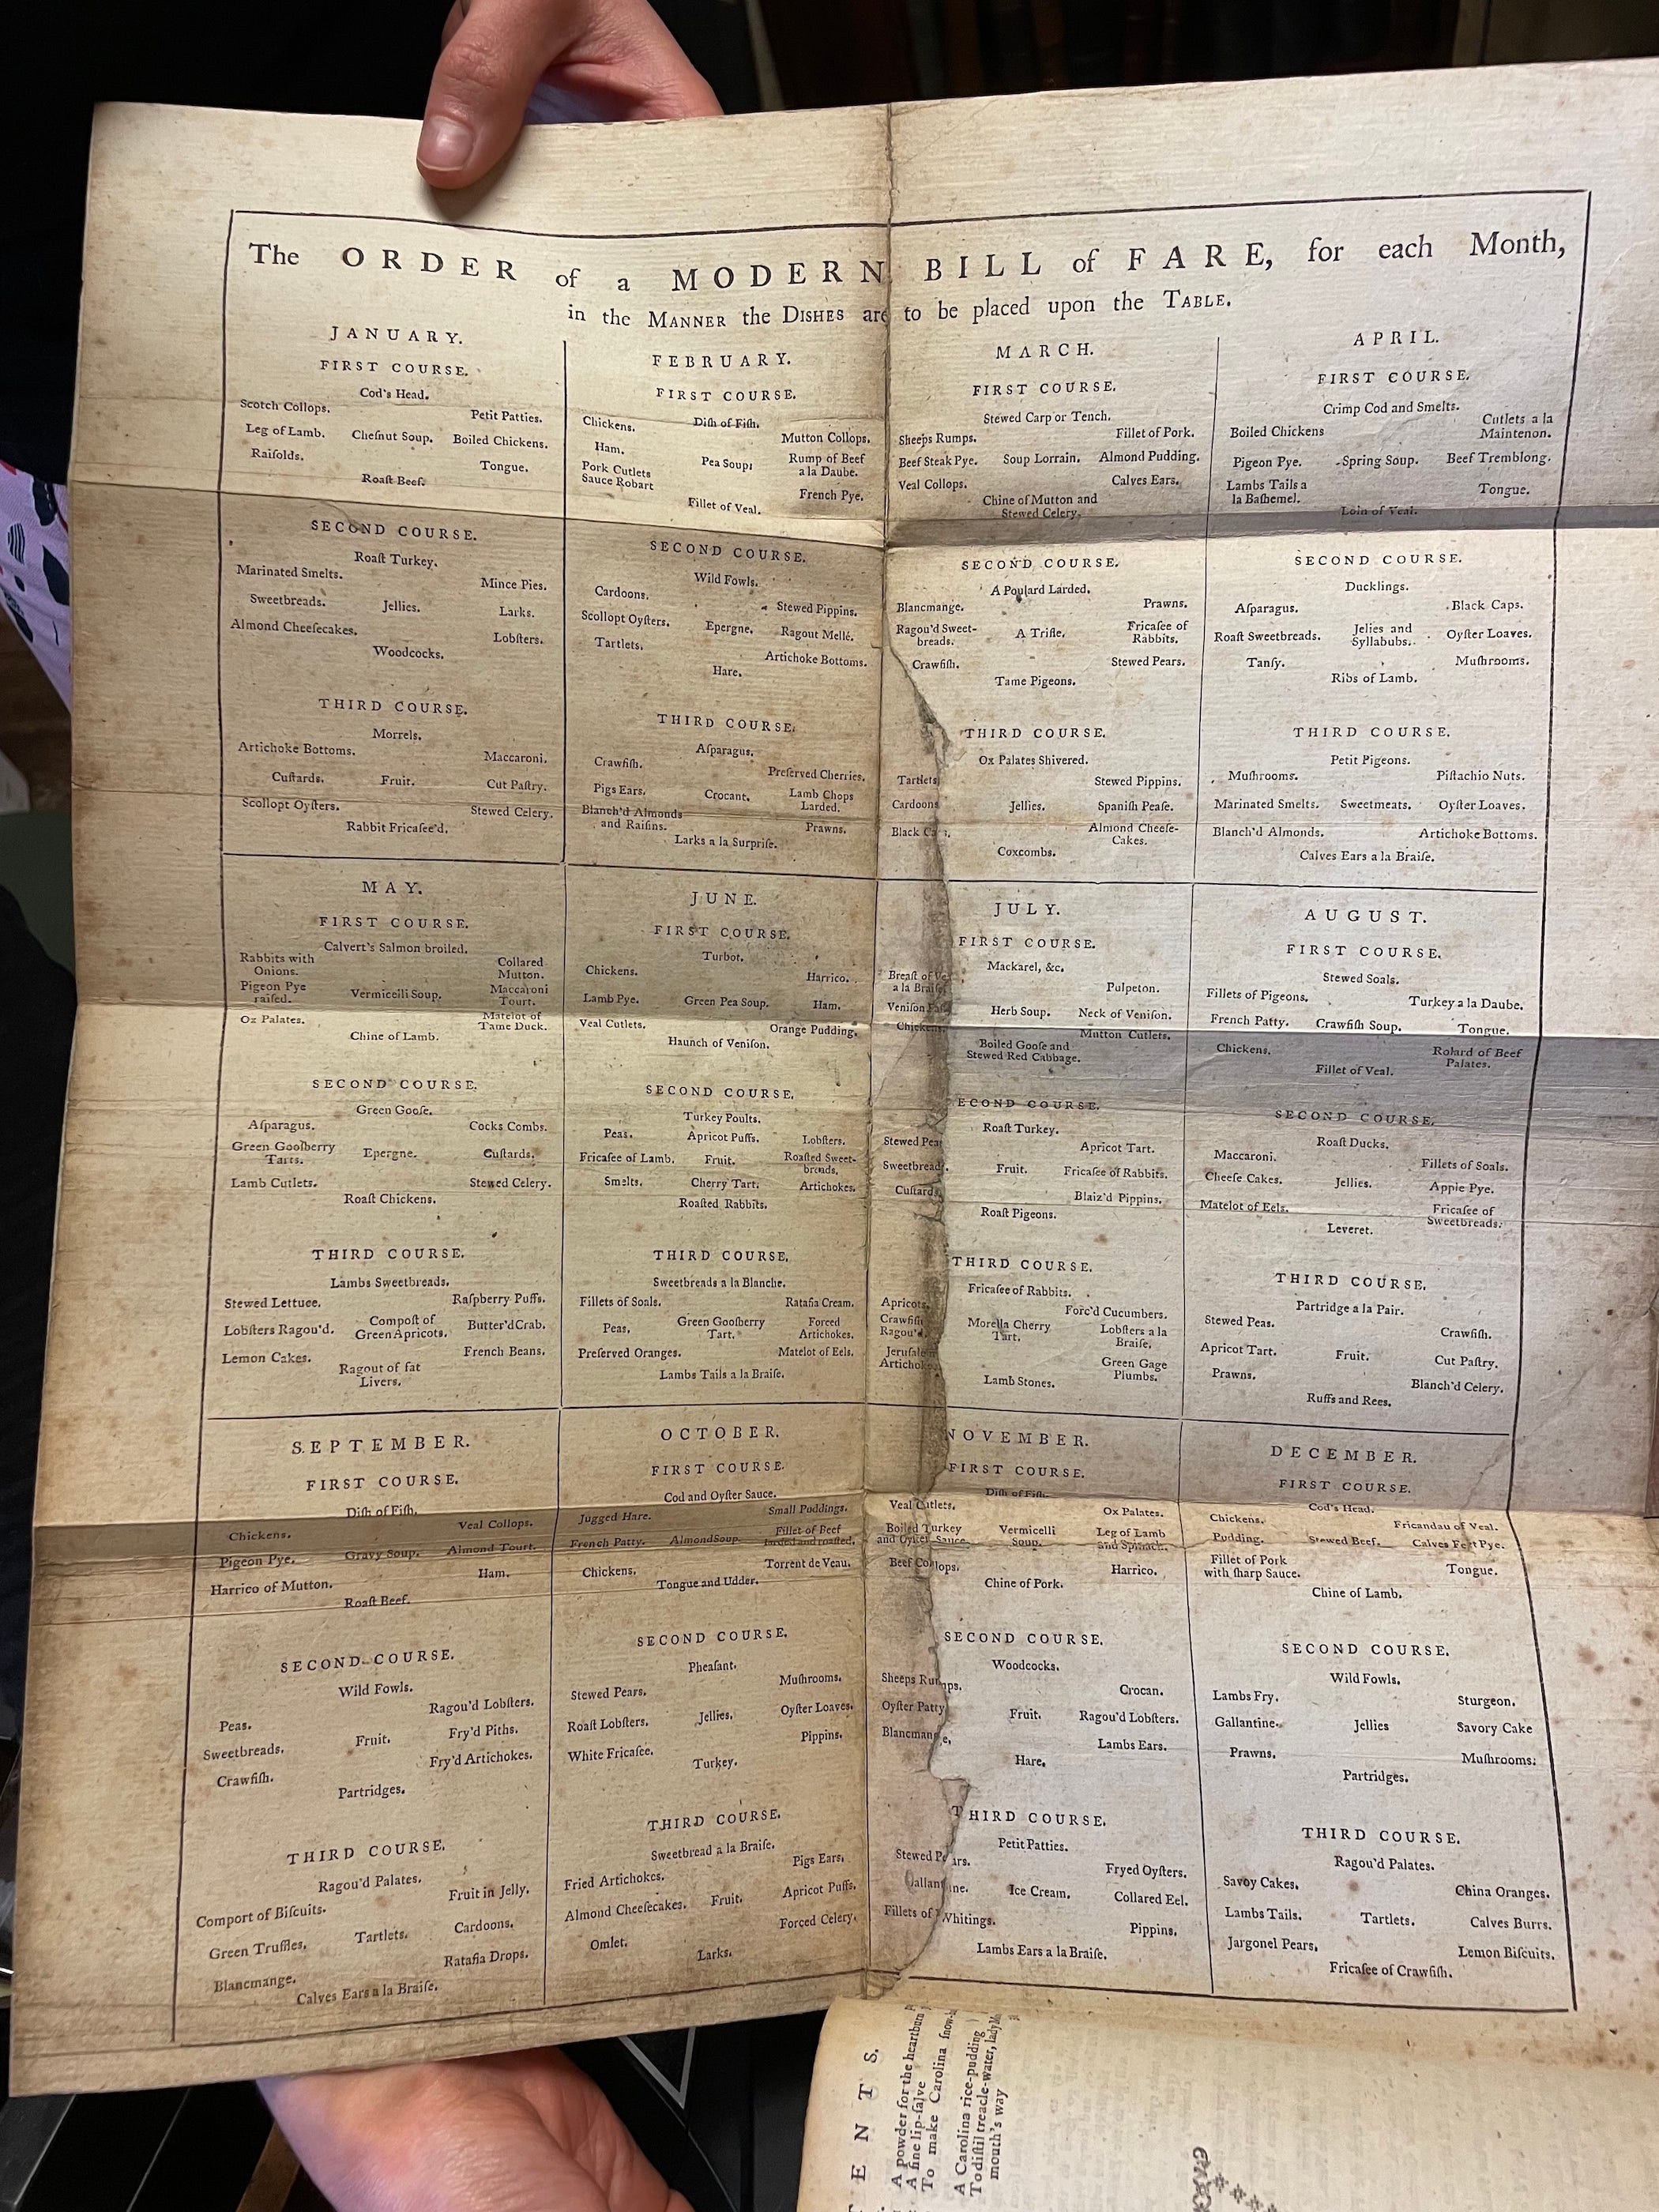 The ORDER of a MODERN BILL of FARE, for each Month,
in the MANNER the DISHES are to be placed upon the TABLE.
JANUARY.
FIRST COURSE.
Cod's Head.
Scotch Collops. Petit Patties.
Leg of Lamb. Cheſnut Soup. Boiled Chickens.
Raiſolds. Tongue.
Roaſt Beef.
SECOND COURSE.
Roaſt Turkey.
Marinated Smelts. Mince Pies.
Sweetbreads. Jellies. Larks.
Almond Cheeſecakes. Lobſters.
Woodcocks.
THIRD COURSE.
Morrels.
Artichoke Bottoms. Maccaroni.
Cuſtards. Fruit. Cut Paſtry.
Scollopt Oyſters. Stewed Celery.
Rabbit Fricaſee'd.
FEBRUARY.
FIRST COURSE.
Diſh of Fiſh.
Chickens. Mutton Collops.
Ham. Pea Soup. Rump of Beef
a la Daube.
Pork Cutlets
Sauce Robart French Pye.
Fillet of Veal.
SECOND COURSE.
Wild Fowls.
Cardoons. Stewed Pippins.
Scollopt Oyſters. Epergne. Ragout Mellé.
Tartlets. Artichoke Bottoms.
Hare.
THIRD COURSE.
Aſparagus.
Crawfiſh. Preſerved Cherries.
Pigs Ears. Crocant. Lamb Chops
Larded.
Blanch'd Almonds
and Raiſins. Prawns.
Larks a la Surpriſe.
MARCH.
FIRST COURSE.
Stewed Carp or Tench.
Sheeps Rumps. Fillet of Pork.
Beef Steak Pye. Soup Lorrain. Almond Pudding.
Veal Collops. Calves Ears.
Chine of Mutton and
Stewed Celery.
SECOND COURSE.
A Poulard Larded.
Blancmange. Prawns.
Ragou'd Sweet-
breads. A Trifle. Fricaſee of
Rabbits.
Crawfiſh. Stewed Pears.
Tame Pigeons.
THIRD COURSE.
Ox Palates Shivered.
Tartlets Stewed Pippins.
Cardoons Jellies. Spaniſh Peaſe.
Black Almond Cheeſe-
Cakes.
Coxcombs.
APRIL.
FIRST COURSE.
Crimp Cod and Smelts.
Boiled Chickens Cutlets a la
Maintenon.
Pigeon Pye. Spring Soup. Beef Tremblong.
Lambs Tails a
la Baſhemel. Tongue.
Loin of Veal.
SECOND COURSE.
Ducklings.
Aſparagus. Black Caps.
Roaſt Sweetbreads. Jelies and
Syllabubs. Oyſter Loaves.
Tanſy. Muſhrooms.
Ribs of Lamb.
THIRD COURSE.
Petit Pigeons.
Muſhrooms. Piſtachio Nuts.
Marinated Smelts. Sweetmeats. Oyſter Loaves.
Blanch'd Almonds. Artichoke Bottoms.
Calves Ears a la Braiſe.
MAY.
FIRST COURSE.
Calvert's Salmon broiled.
Rabbits with
Onions. Collared
Mutton.
Pigeon Pye
raiſed. Vermicelli Soup. Maccaroni
Tourt.
Ox Palates. Matelot of
Tame Duck.
Chine of Lamb.
SECOND COURSE.
Green Gooſe.
Aſparagus. Cocks Combs.
Green Gooſberry
Tarts. Epergne. Cuſtards.
Lamb Cutlets. Stewed Celery.
Roaſt Chickens.
THIRD COURSE.
Lambs Sweetbreads.
Stewed Lettuce. Raſpberry Puffs.
Lobſters Ragou'd. Compoſt of
Green Apricots. Butter'd Crab.
Lemon Cakes. French Beans.
Ragout of fat
Livers.
JUNE.
FIRST COURSE.
Turbot.
Chickens. Harrico.
Lamb Pye. Green Pea Soup. Ham.
Veal Cutlets. Orange Pudding.
Haunch of Veniſon.
SECOND COURSE.
Turkey Poults.
Peas. Apricot Puffs. Lobſters.
Fricaſee of Lamb. Fruit. Roaſted Sweet-
breads.
Smelts. Cherry Tart. Artichokes.
Roaſted Rabbits.
THIRD COURSE.
Sweetbreads a la Blanche.
Fillets of Soals. Ratafia Cream.
Peas. Green Gooſberry
Tart. Forced
Artichokes.
Preſerved Oranges. Matelot of Eels.
Lambs Tails a la Braiſe.
JULY.
FIRST COURSE.
Mackarel, &c.
Breaſt of
a la Pulpeton.
Veniſon Herb Soup. Neck of Veniſon.
Chickens. Mutton Cutlets.
Boiled Gooſe and
Stewed Red Cabbage.
ECOND COURSE.
Roaſt Turkey.
Stewed Apricot Tart.
Sweetbread Fruit. Fricaſee of Rabbits.
Cuſtards Blaiz'd Pippins.
Roaſt Pigeons.
THIRD COURSE.
Fricaſee of Rabbits.
Apricots. Forc'd Cucumbers.
Crawfiſh
Ragou'd. Morella Cherry
Tart. Lobſters a la
Braiſe.
Green Gage
Plumbs.
Lamb Stones.
AUGUST.
FIRST COURSE.
Stewed Soals.
Fillets of Pigeons. Turkey a la Daube.
French Patty. Crawfiſh Soup. Tongue.
Chickens. Rolard of Beef
Palates.
Fillet of Veal.
SECOND COURSE.
Roaſt Ducks.
Maccaroni. Fillets of Soals.
Cheeſe Cakes. Jellies. Apple Pye.
Matelot of Eels. Fricaſee of
Sweetbreads.
Leveret.
THIRD COURSE.
Partridge a la Pair.
Stewed Peas. Crawfiſh.
Apricot Tart. Fruit. Cut Paſtry.
Prawns. Blanch'd Celery.
Ruffs and Rees.
SEPTEMBER.
FIRST COURSE.
Diſh of Fiſh.
Chickens. Veal Collops.
Pigeon Pye. Gravy Soup. Almond Tourt.
Harrico of Mutton. Ham.
Roaſt Beef.
SECOND COURSE.
Wild Fowls.
Peas. Ragou'd Lobſters.
Sweetbreads. Fruit. Fry'd Piths.
Crawfiſh. Fry'd Artichokes.
Partridges.
THIRD COURSE.
Ragou'd Palates.
Comport of Biſcuits. Fruit in Jelly.
Green Truffles. Tartlets. Cardoons.
Blancmange. Ratafia Drops.
Calves Ears a la Braiſe.
OCTOBER.
FIRST COURSE.
Cod and Oyſter Sauce.
Jugged Hare. Small Puddings.
French Patty. Almond Soup. Fillet of Beef
larded and roaſted.
Chickens. Torrent de Veau.
Tongue and Udder.
SECOND COURSE.
Pheaſant.
Stewed Pears. Muſhrooms.
Roaſt Lobſters. Jellies. Oyſter Loaves.
White Fricaſee. Pippins.
Turkey.
THIRD COURSE.
Sweetbread a la Braiſe.
Fried Artichokes. Pigs Ears.
Almond Cheeſecakes. Fruit. Apricot Puffs.
Omlet. Forced Celery.
Larks.
NOVEMBER.
FIRST COURSE.
Diſh of Fiſh.
Veal Cutlets. Ox Palates.
Boiled Turkey
and Oyſter Sauce. Vermicelli
Soup. Leg of Lamb
and Spinach.
Beef Collops. Harrico.
Chine of Pork.
SECOND COURSE.
Woodcocks.
Sheeps Rumps. Crocan.
Oyſter Patty Fruit. Ragou'd Lobſters.
Blancmange, Lambs Ears.
Hare.
THIRD COURSE.
Petit Patties.
Stewed Pears. Fryed Oyſters.
Gallantine. Ice Cream. Collared Eel.
Fillets of Whitings. Pippins.
Lambs Ears a la Braiſe.
DECEMBER.
FIRST COURSE.
Cod's Head.
Chickens. Fricandau of Veal.
Pudding. Stewed Beef. Calves Feet Pye.
Fillet of Pork
with ſharp Sauce. Tongue.
Chine of Lamb.
SECOND COURSE.
Wild Fowls.
Lambs Fry. Sturgeon.
Gallantine. Jellies Savory Cake
Prawns. Muſhrooms.
Partridges.
THIRD COURSE.
Ragou'd Palates.
Savoy Cakes. China Oranges.
Lambs Tails. Tartlets. Calves Burrs.
Jargonel Pears. Lemon Biſcuits.
Fricaſee of Crawfiſh.
TENTS.
A powder for the heartburn
A fine lip-ſalve
To make Carolina ſnow-
A Carolina rice-pudding
To diſtil treacle-water, lady
mouth's way